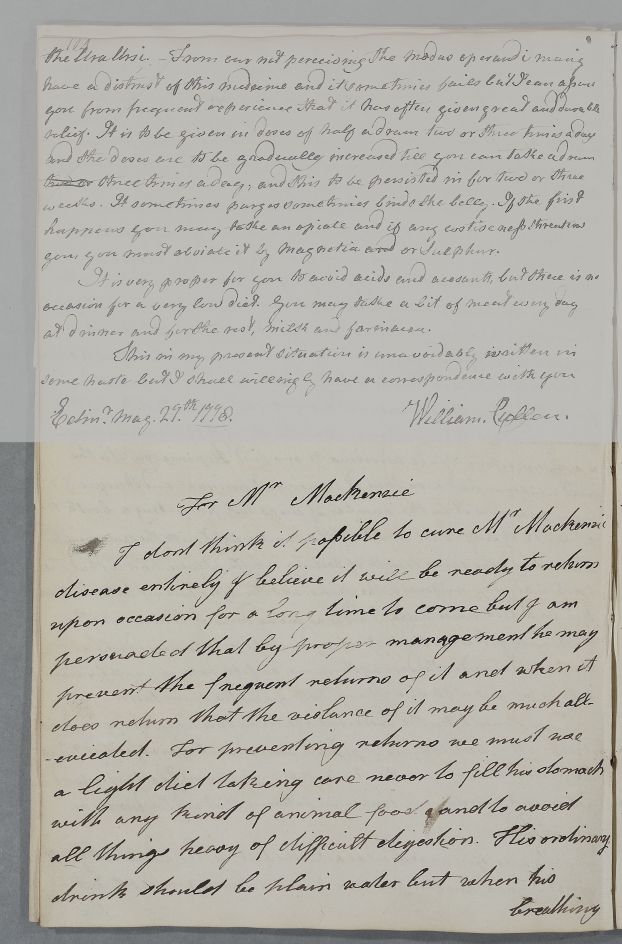 the Uva Ursi. - From our not perceiving the modus operandi many
have a distrust of this medicine and it sometimes fails but I can assure
you from frequent experience that it has often given great and durable
relief. It is to be given in doses of half a dram two or three times a day
and the doses are to be gradually increased till you can take a dram
three times a day, and this to be persisted in for two or three
weeks. It sometimes purges sometimes binds the belly. If the first
happens you may take an opiate and if any costiveness threatens
you you must obviate it by Magnesia and or Sulphur.
It is very proper for you to avoid acids and acescents, but there is no
occasion for a very low diet. You may take a bit of meat every day
at dinner and for the rest, milk and farinacea.
This in my present situation is unavoidably written in
some haste but I shall willingly have a correspondence with you
Edinr. May. 29th 1778. William. Cullen.
For Mr Mackenzie
I dont think it possible to cure Mr Mackenzie
disease entirely I believe it will be ready to return
upon occasion for a long time to come but I am
persuaded that by proper management he may
prevent the frequent returns of it and when it
does return that the violance of it may be much all-
-eviated. For preventing returns we must use
a light diet taking care never to fill his stomach
with any kind of animal food and to avoid
all things heavy of difficult digestion. His ordinary
drink should be plain water but when his
breathing